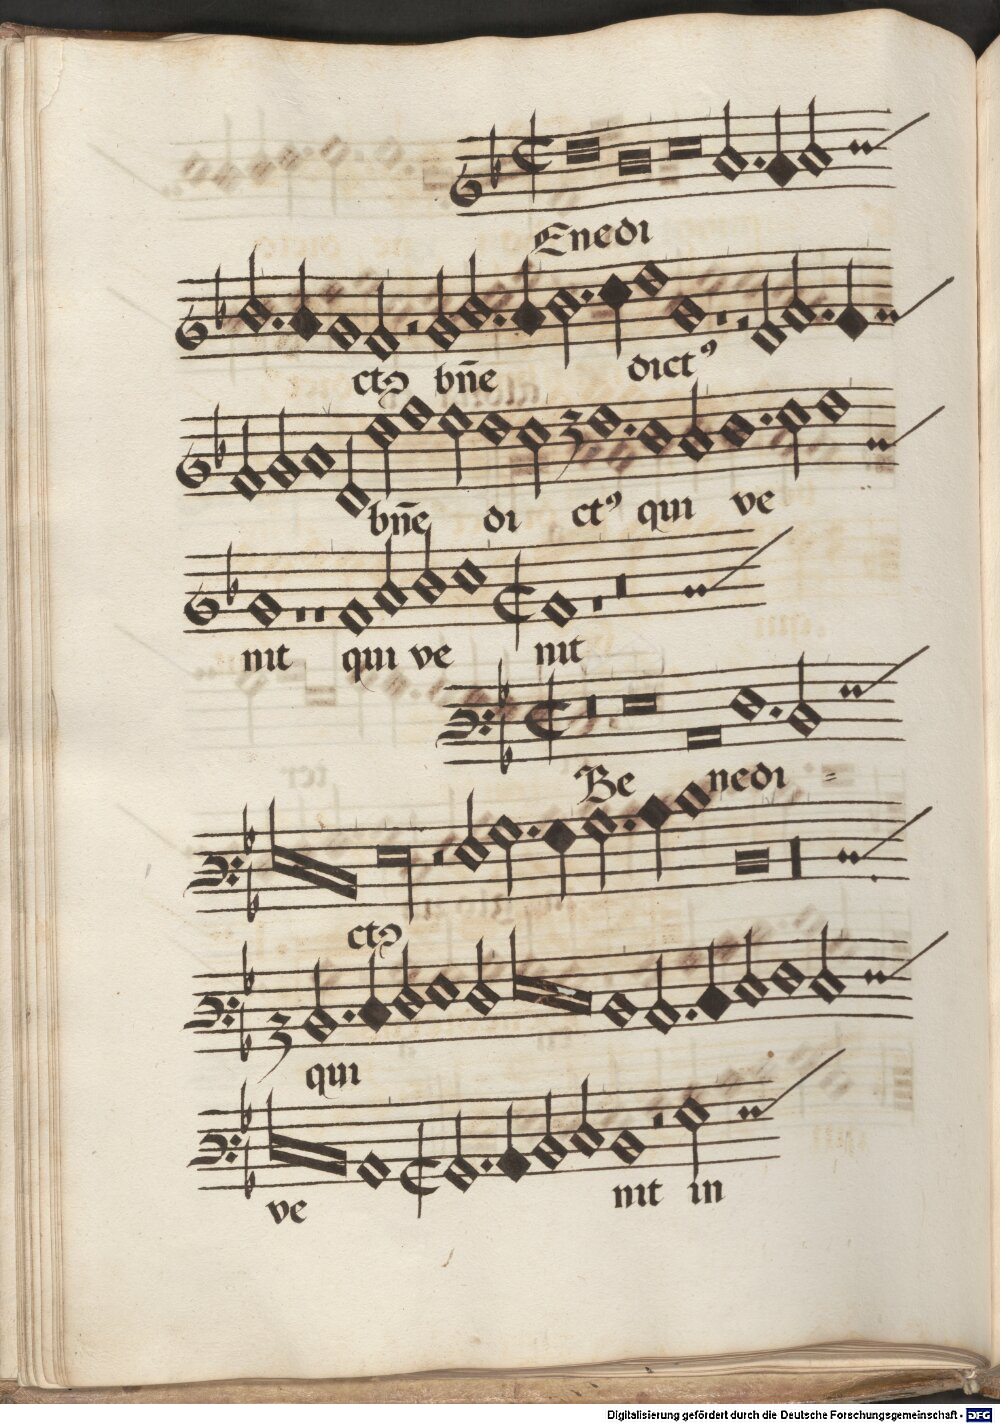 Enedi
ctꝰ bn̄e dictꝰ
bn̄e di ctꝰ qui ve
nit qui ve nit
Be nedi =
ctꝰ
qui
ve nit in
Digitalisierung gefördert durch die Deutsche Forschungsgemeinschaft - DFG